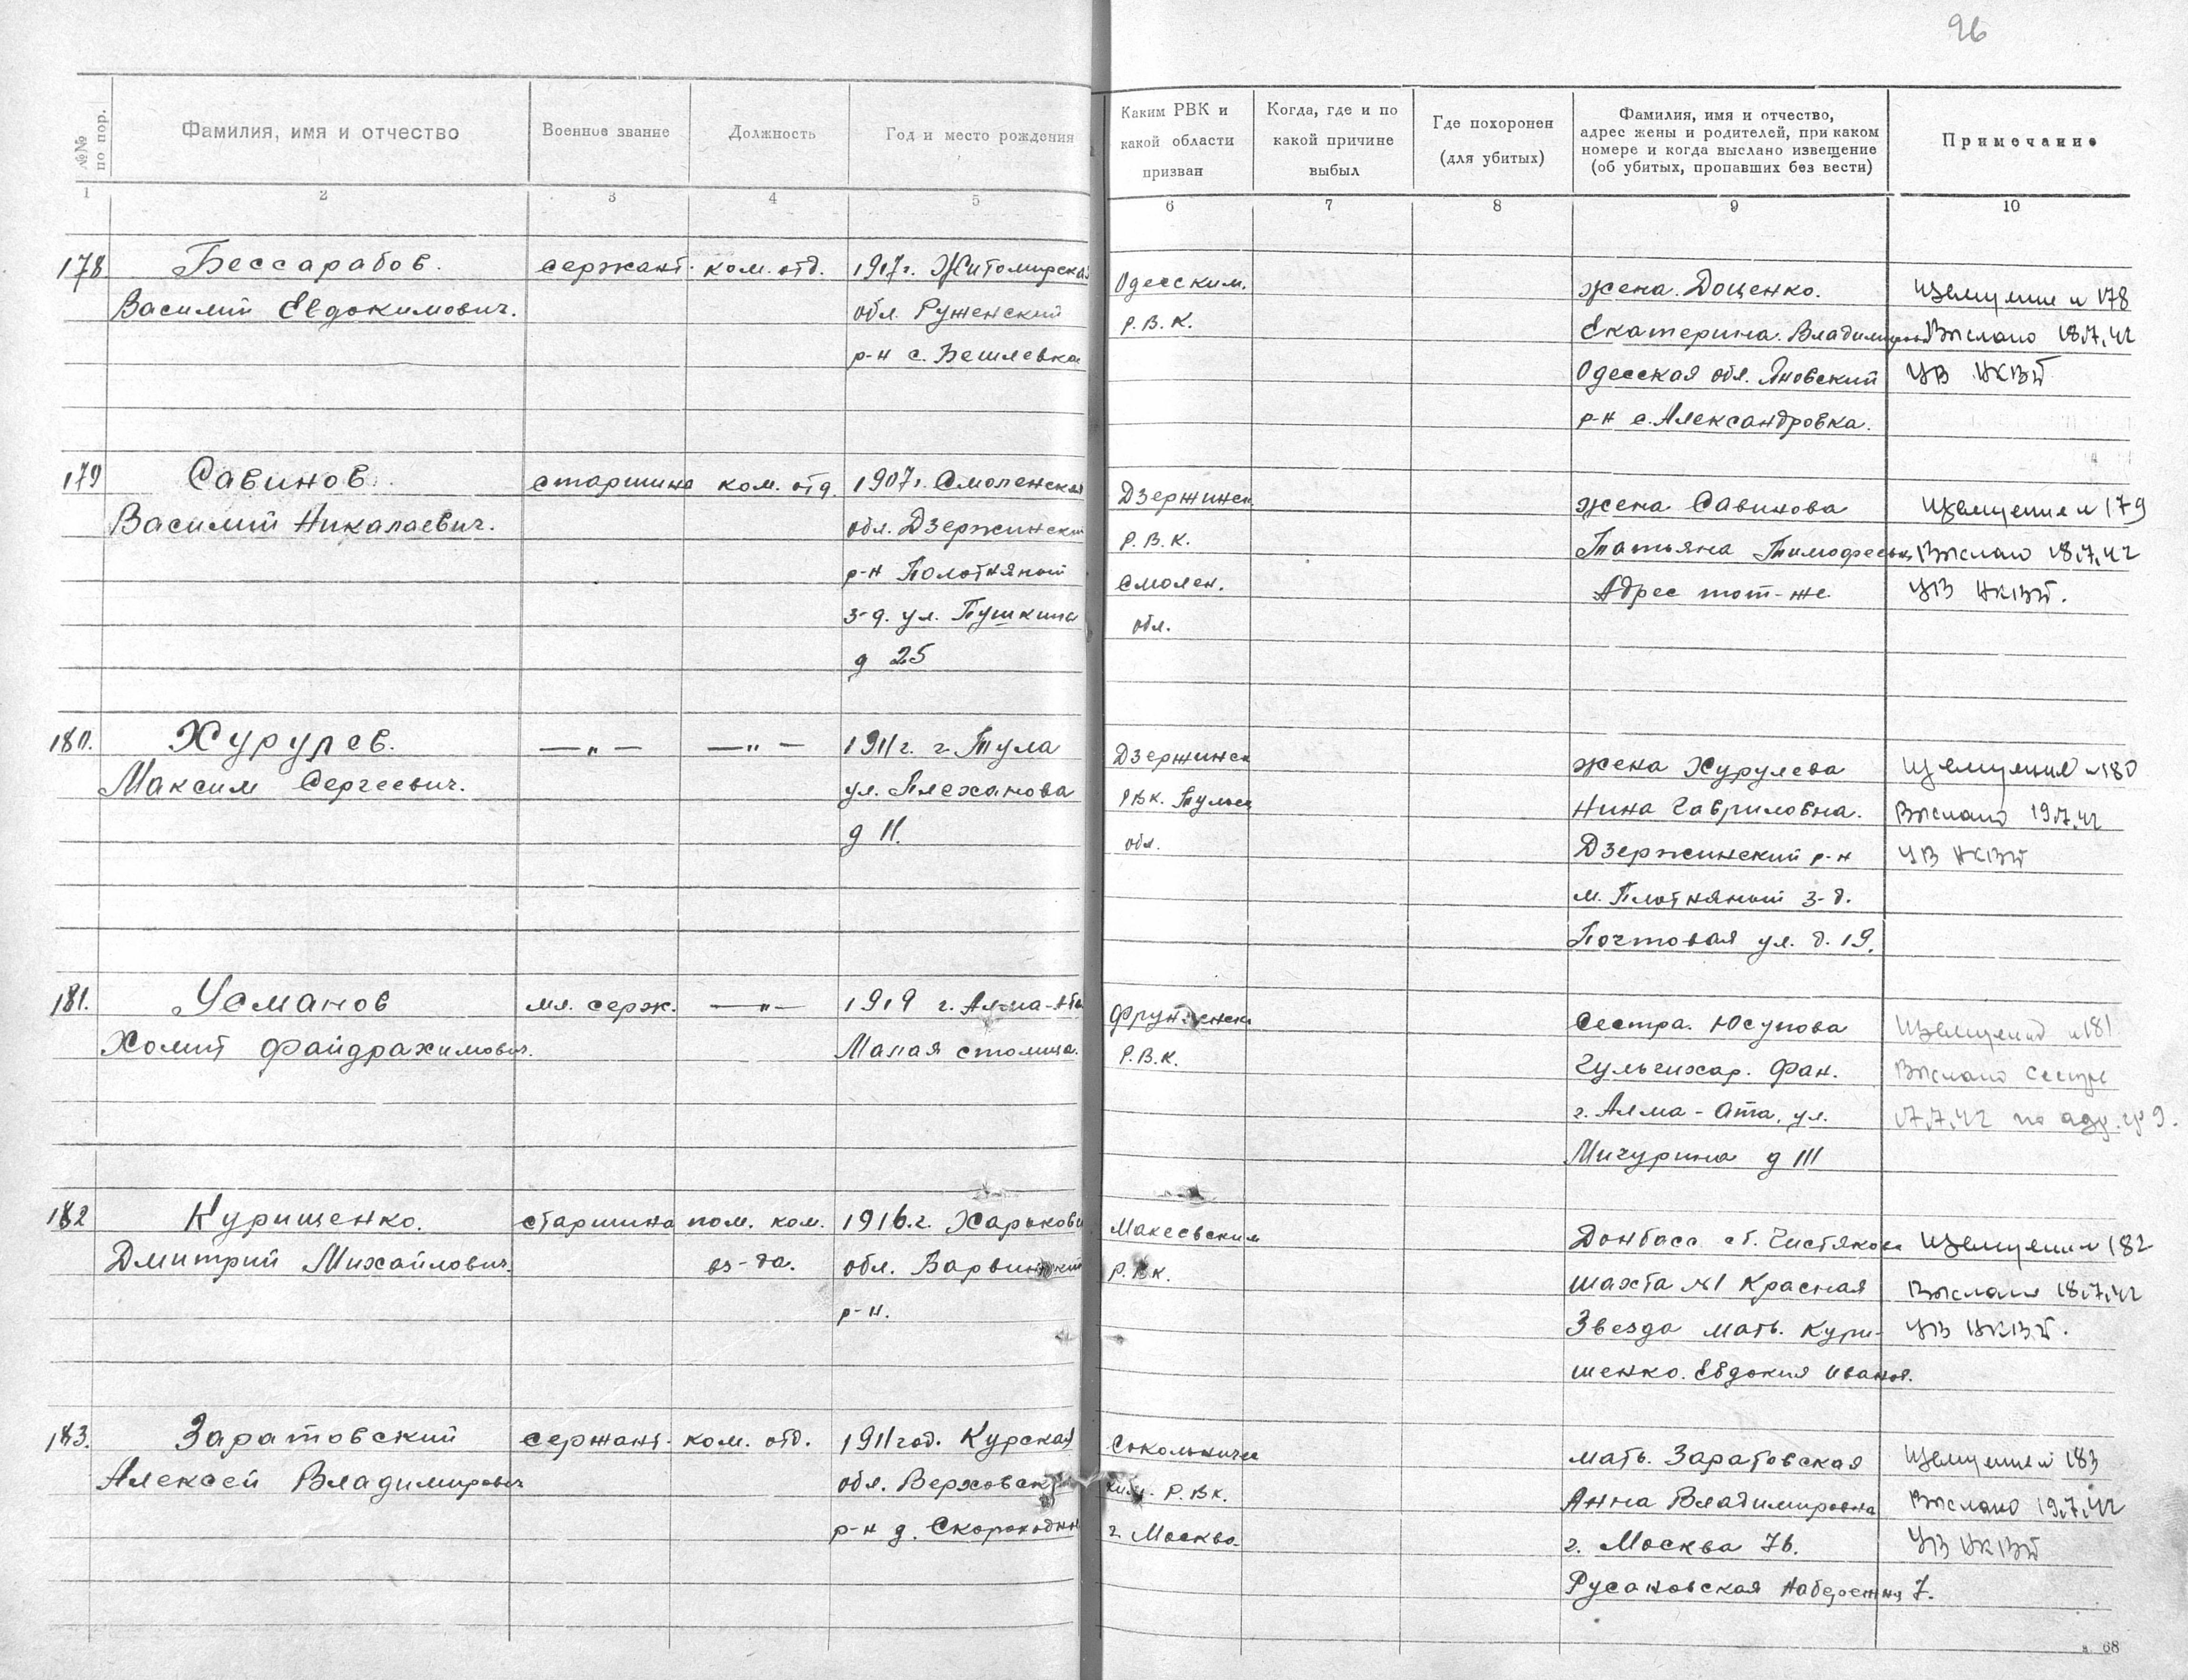 96
№№ по пор.
Фамилия, имя и отчество
Военное звание
Должность
Год и место рождения
Каким РВК и какой области призван
Когда, где и по какой причине выбыл
Где похоронен (для убитых)
Фамилия, имя и отчество, адрес жены и родителей, при каком номере и когда выслано извещение (об убитых, пропавших без вести)
Примечание
1 2 3 4 5 6 7 8 9 10
178 Бессарабов. сержант. ком. отд. 1917г. Житомирская Одесским. жена. Доценко. Извещение № 178
Василий Евдокимович. обл. Руженский Р.В.К. Екатерина. Владимировна Выслано 18.7.42
р-н с. Бешлевка Одесская обл. Яновский УВ НКВД
р-н с. Александровка.
179 Савинов. старшина ком. отд. 1907г. Смоленская Дзержинск. жена Савинова Извещение № 179
Василий Никалаевич. обл. Дзержинский Р.В.К. Татьяна Тимофеевна Выслано 18.7.42
р-н Полотняный Смолен. Адрес тот-же.
з-д. ул. Пушкина обл.
д 25
180. Хурулев. —"— —"— 1911г. г. Тула Дзержинск жена Хурулева Извещение №180
Максим Сергеевич. ул. Плеханова РВК. Тульск Нина Гавриловна. Выслано 19.7.42
д 11. обл. Дзержинский р-н
м. Плотняный з-д.
Почтовая ул. д. 19.
181. Усманов мл. серж. —"— 1919 г. Алма-Ата Фрунзенск Сестра. Юсупова Извещение №181
Хомит Файдрахимович. Малая столица. Р.В.К. Гульгихар. Фан. Выслано сестре
г. Алма-Ата, ул. 17.7.42 по адр. гр 9.
Мичурина д 111
182 Курищенко. старшина пом. ком. 1916.г. Харьковск Макеевским Донбасс ст. Чистяково Извещение № 182
Дмитрий Михайлович. вз-да. обл. Варвинский Р.В.К. шахта №1 Красная Выслано 18.7.42
р-н. Звезда мать. Кури-
шенко. Евдокия Иванов.
183. Заратовский сержант. ком. отд. 1911год. Курская Сокольниче мать. Заратовская Извещение № 183
Алексей Владимирович обл. Верховск Р.В.К. Анна Владимировна Выслано 19.7.42
р-н д. г. Москва. г. Москва 76.
Русановская набережная 7.
68